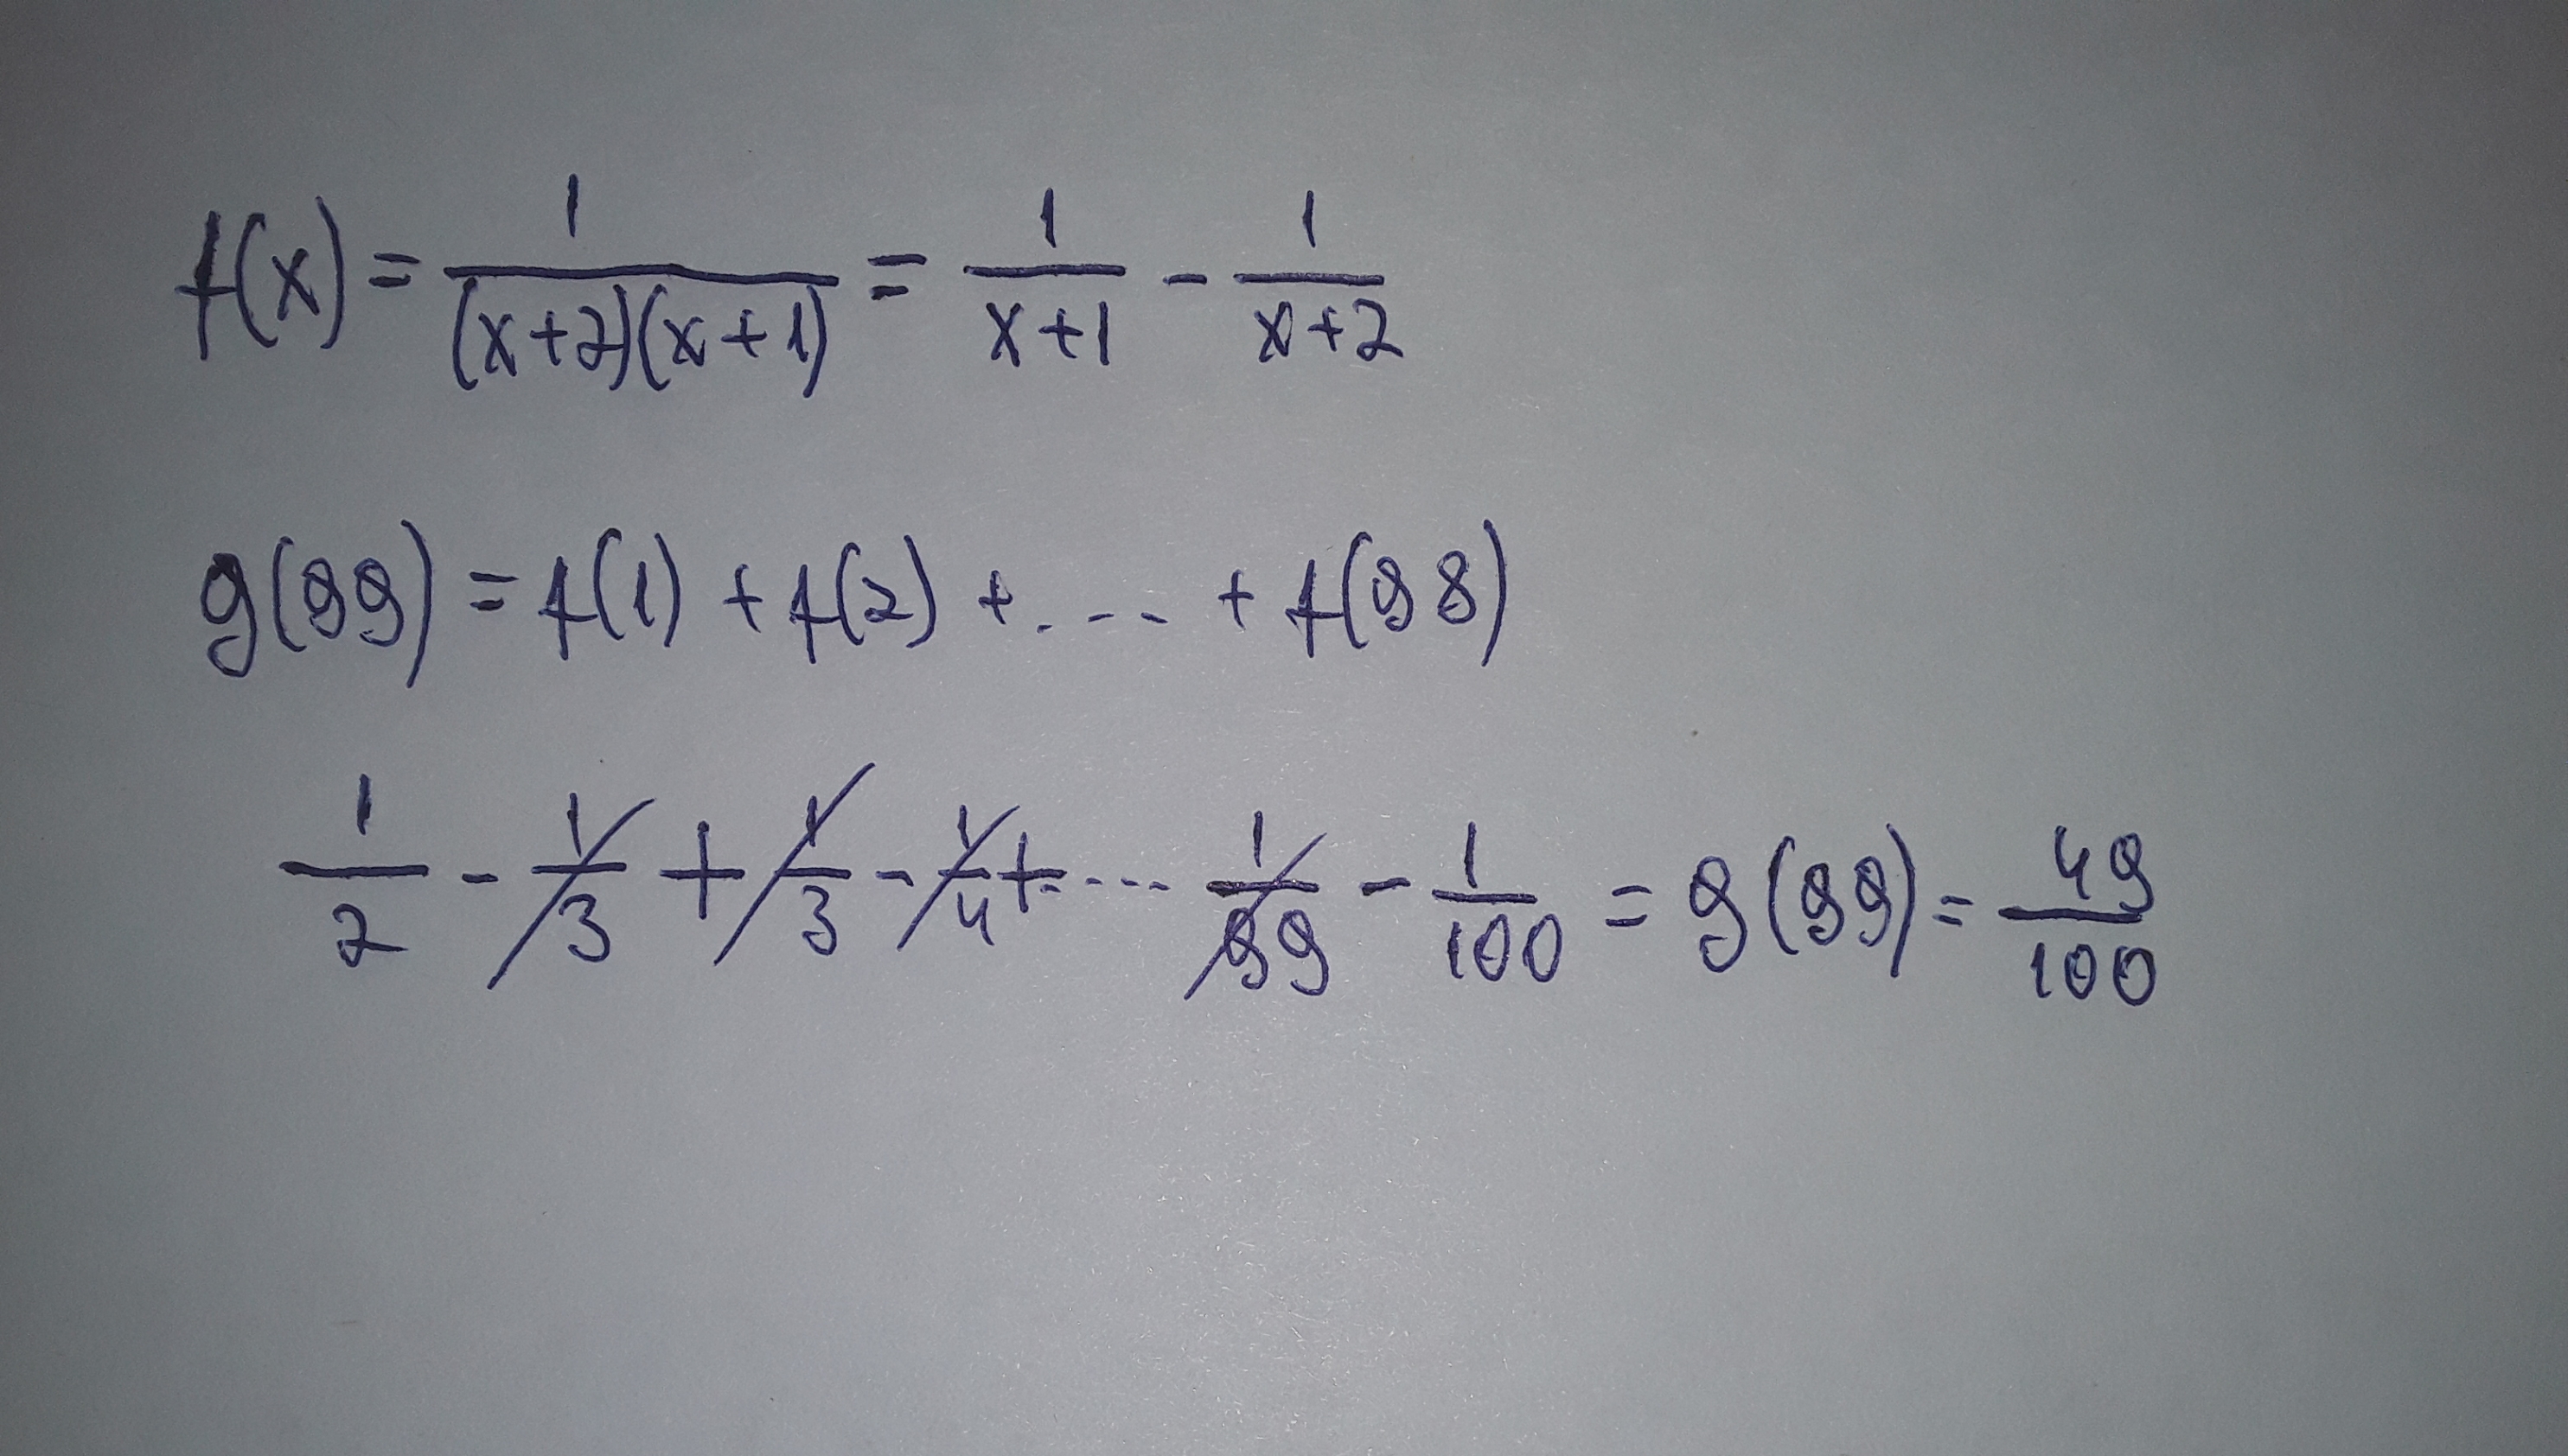 f(x) = 1/((x+2)(x+1)) = 1/(x+1) - 1/(x+2)
g(99) = f(1) + f(2) + .... + f(98)
1/2 - 1/3 + 1/3 - 1/4 + .... 1/99 - 1/100 = g(99) = 49/100